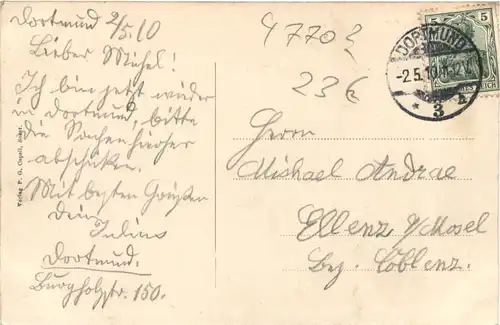 Dortmund 2/5.10
Lieber Michel!
Ich bin jetzt wieder
in Dortmund, bitte
die Sachen hierher
abschicken.
Mit besten Grüßen
Dein
Julius
Dortmund.
Burgholzstr. 150.
Verlag F. G. Cappell, Soest.
4770
23€
5 5
DORTMUND
-2.5.10.11-12V.
* 3 k
REICH
Herrn
Michael Andrae
Ellenz a/Mosel
Bez. Coblenz.